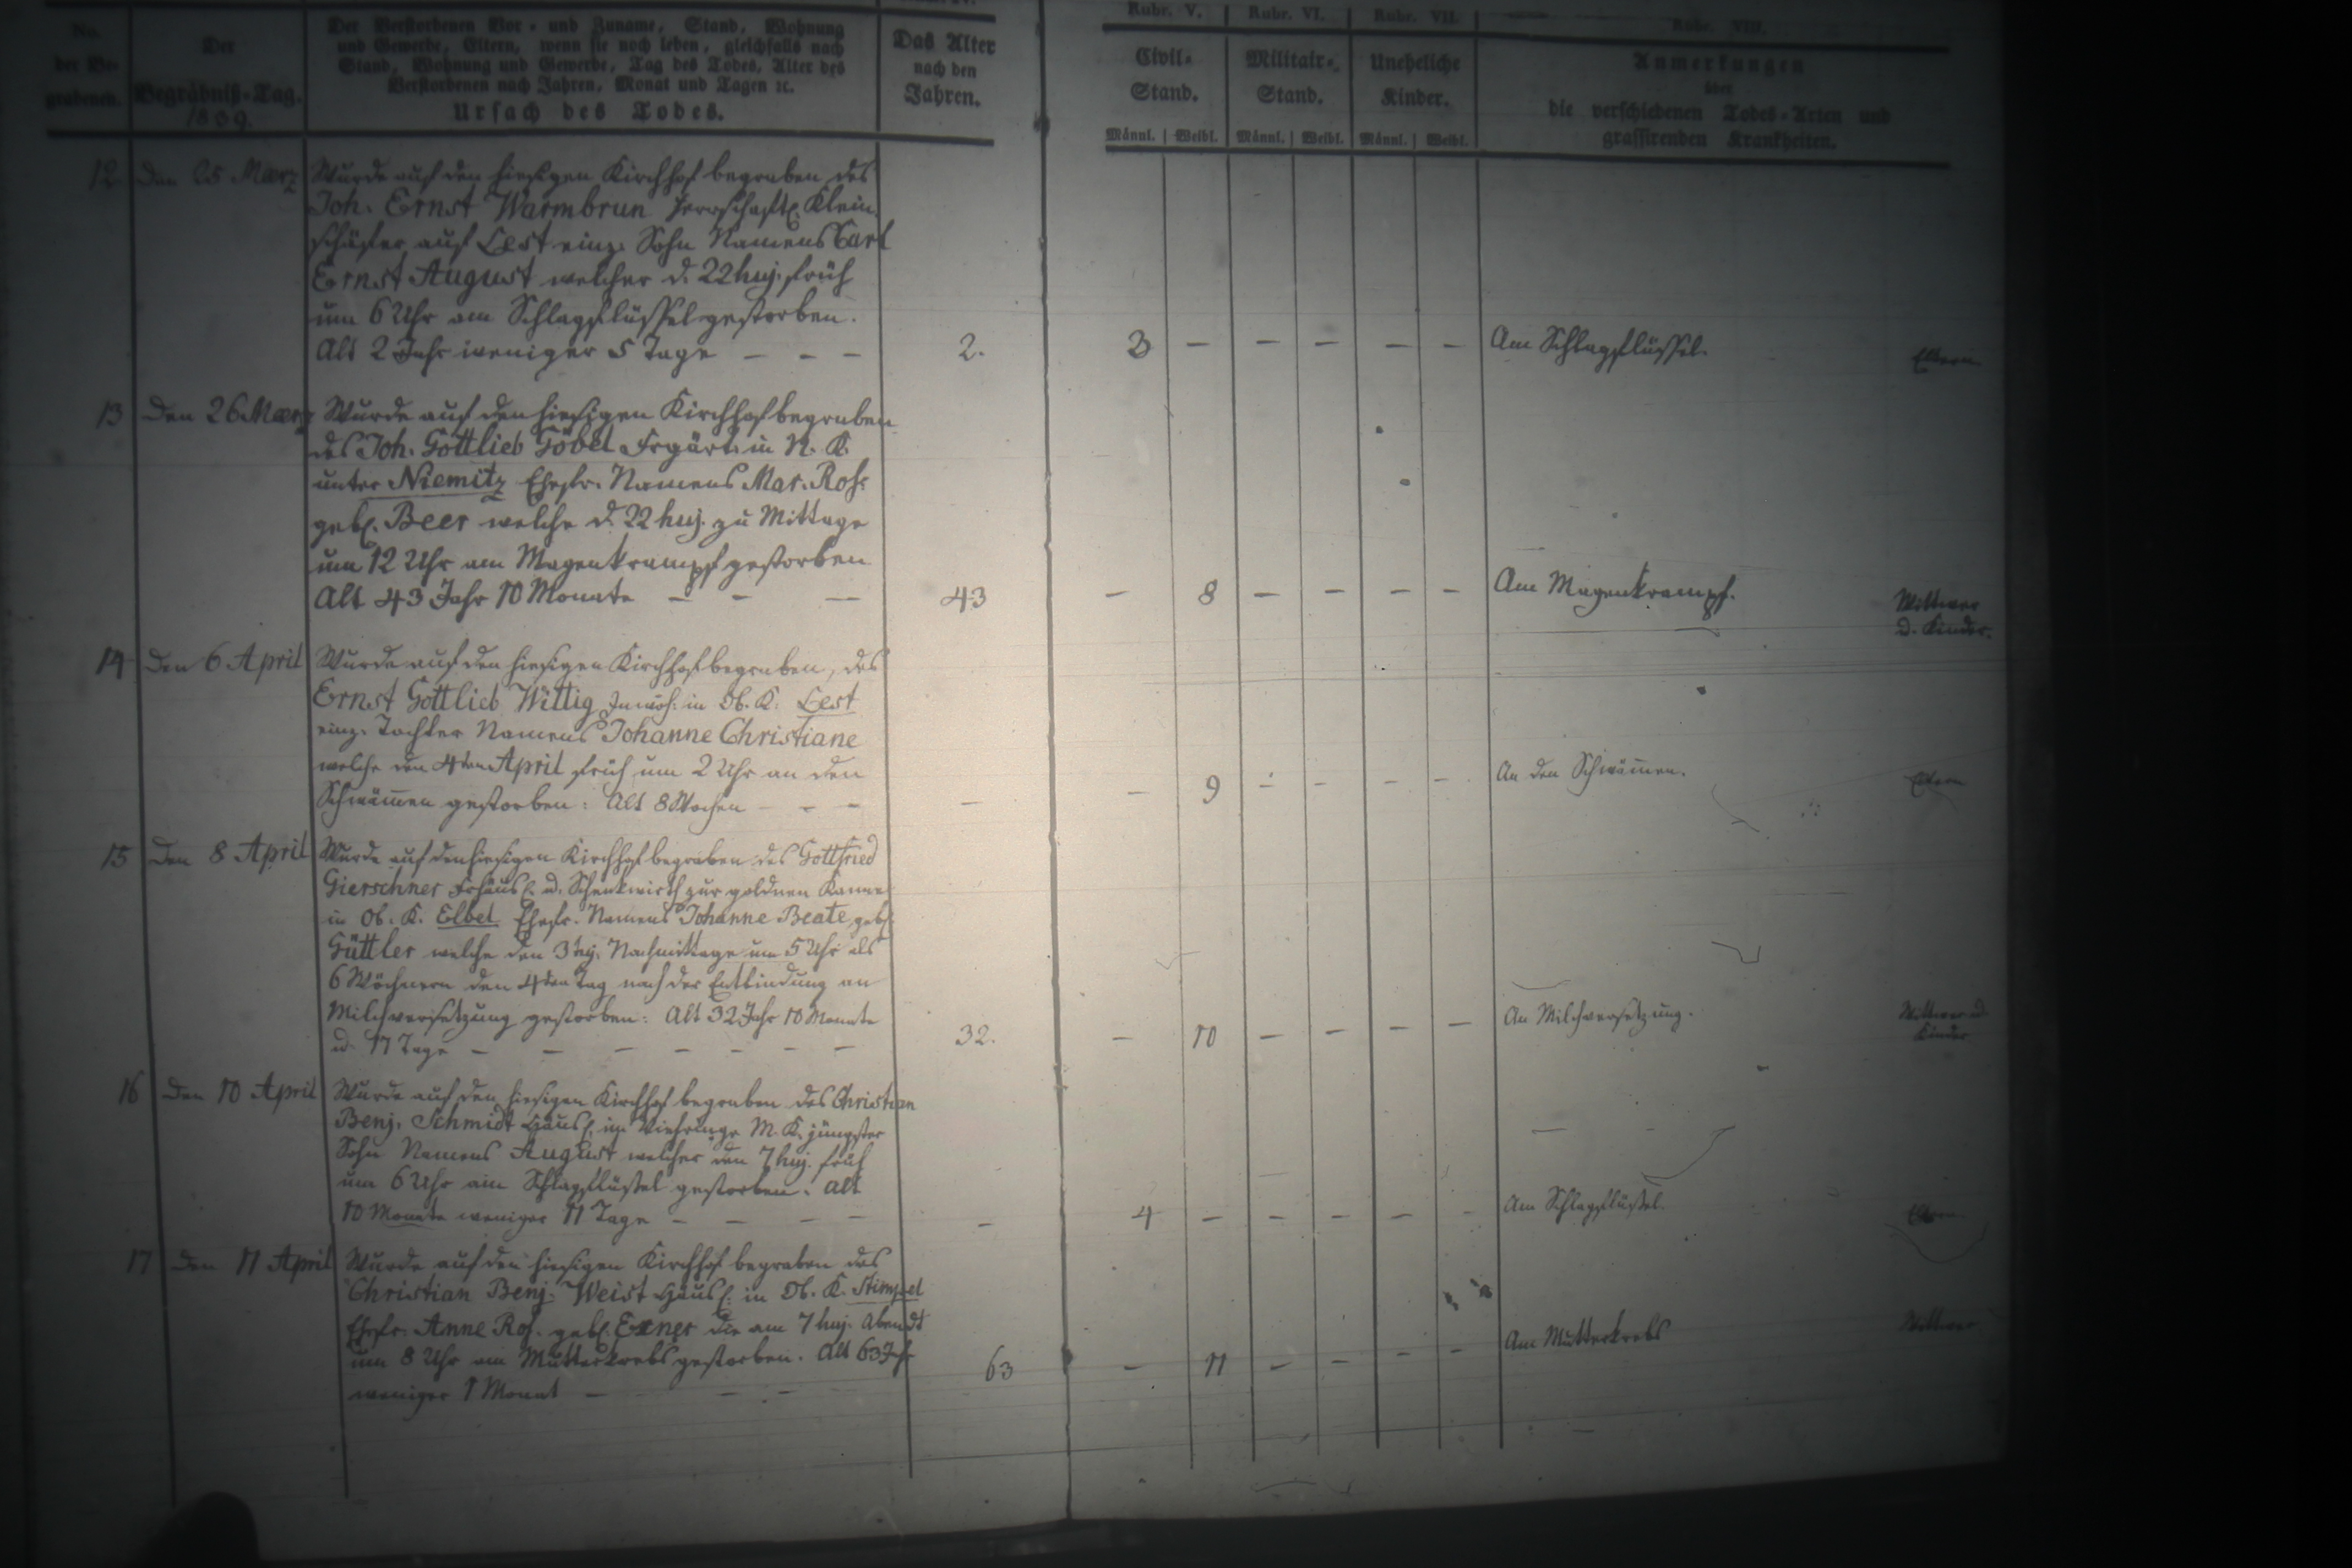 Rubr. V. Rubr. VI. Rubr. VII. Rubr. VIII.
No. der Be-grabenen.
Der Begräbniß-Tag. 1839.
Der Verstorbenen Vor- und Zuname, Stand, Wohnung
und Gewerbe, Eltern, wenn sie noch leben, gleichfalls nach
Stand, Wohnung und Gewerbe, Tag des Todes, Alter des
Verstorbenen nach Jahren, Monat und Tagen ꝛc.
Ursach des Todes.
Das Alter
nach den
Jahren.
Civil-
Stand.
Militair-
Stand.
Uneheliche
Kinder.
Anmerkungen
über
die verschiedenen Todes-Arten und
grassirenden Krankheiten.
Männl. Weibl. Männl. Weibl. Männl. Weibl.
12 Den 25 Maerz Wurde auf den hiesigen Kirchhof begraben des
Joh. Ernst Warmbrun herrschaftl. Klein-
schäfer auf Lest einz. Sohn Namens Carl
Ernst August welcher d. 22 huj. früh
um 6 Uhr am Schlagflüssel gestorben.
Alt 2 Jahr weniger 5 Tage – – – 2. 3 – – – – – Am Schlagflüssel. Eltern
13 Den 26 Maerz Wurde auf den hiesigen Kirchhof begraben
des Joh. Gottlieb Göbel Frgärt. in N. K.
unter Niemitz Ehefr. Namens Mar. Ros.
geb. Beer welche d. 22 huj. zu Mittage
um 12 Uhr am Magenkrampf gestorben
Alt 43 Jahr 10 Monate – – – 43 – 8 – – – – Am Magenkrampf. Wittwer
u. Kinder.
14 Den 6 April Wurde auf den hiesigen Kirchhof begraben, des
Ernst Gottlieb Wittig Inwoh. in Ob. K. Lest
einz. Tochter Namens Johanne Christiane
welche den 4ten April früh um 2 Uhr an den
Schwämen gestorben: Alt 8 Wochen – – – – – 9 – – – – An den Schwämen. Eltern
15 Den 8 April Wurde auf den hiesigen Kirchhof begraben des Gottfried
Gierschner Frhäusl. u. Schenkwirth zur goldnen Kanne
in Ob. K. Elbel Ehefr. Namens Johanne Beate geb.
Güttler welche den 3 huj. Nachmittage um 5 Uhr als
6 Wöchnern den 4ten Tag nach der Entbindung an
Milchversetzung gestorben: Alt 32 Jahr 10 Monate
u. 17 Tage – – – – – – – 32. – 10 – – – – An Milchversetzung. Wittwer u.
Kinder
16 Den 10 April Wurde auf den hiesigen Kirchhof begraben des Christian
Benj. Schmidt Häusl. im Viehringe M. K. jüngster
Sohn Namens August welcher den 7 huj. früh
um 6 Uhr am Schlagflüssel gestorben. Alt
10 Monate weniger 11 Tage – – – – – 4 – – – – – Am Schlagflüssel. Eltern
17 Den 11 April Wurde auf den hiesigen Kirchhof begraben des
Christian Benj. Weist Häusl. in Ob. K. Stimpel
Ehefr. Anne Ros. geb. Exner die am 7 huj. Abendt
um 8 Uhr am Mutterkrebs gestorben. Alt 63 Jahr
weniger 1 Monat – – – 63 – 11 – – – – Am Mutterkrebs Wittwer